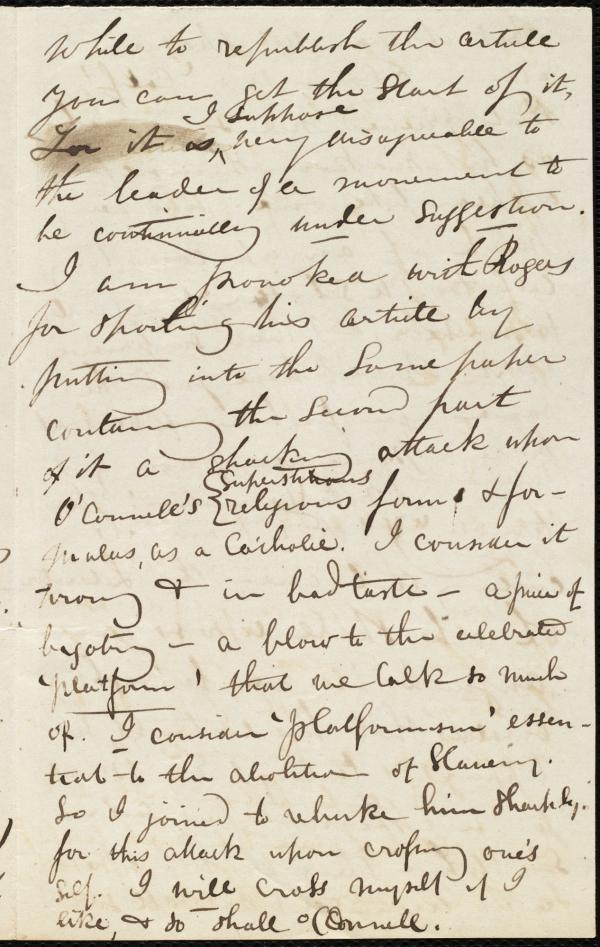 while to republish the article
you can get the start of it,
I suppose
For it is, ^ very disagreeable to
the leader of a movement to
be continually under suggestion.
I am provoked with Rogers
for spoiling his article by
putting into the same paper
containing the second part
of it a shocking attack upon
{superstitious
O'Connell's {religious forms & for-
mulas, as a Catholic. I consider it
wrong & in bad taste — a piece of
bigotry — a blow to the celebrated
'platform' that we talk so much
of. I consider 'platformism' essen-
tial to the abolition of Slavery.
So I joined to rebuke him sharply.
for this attack upon crossing one's
self. I will cross myself if I
like, & so shall O'Connell.